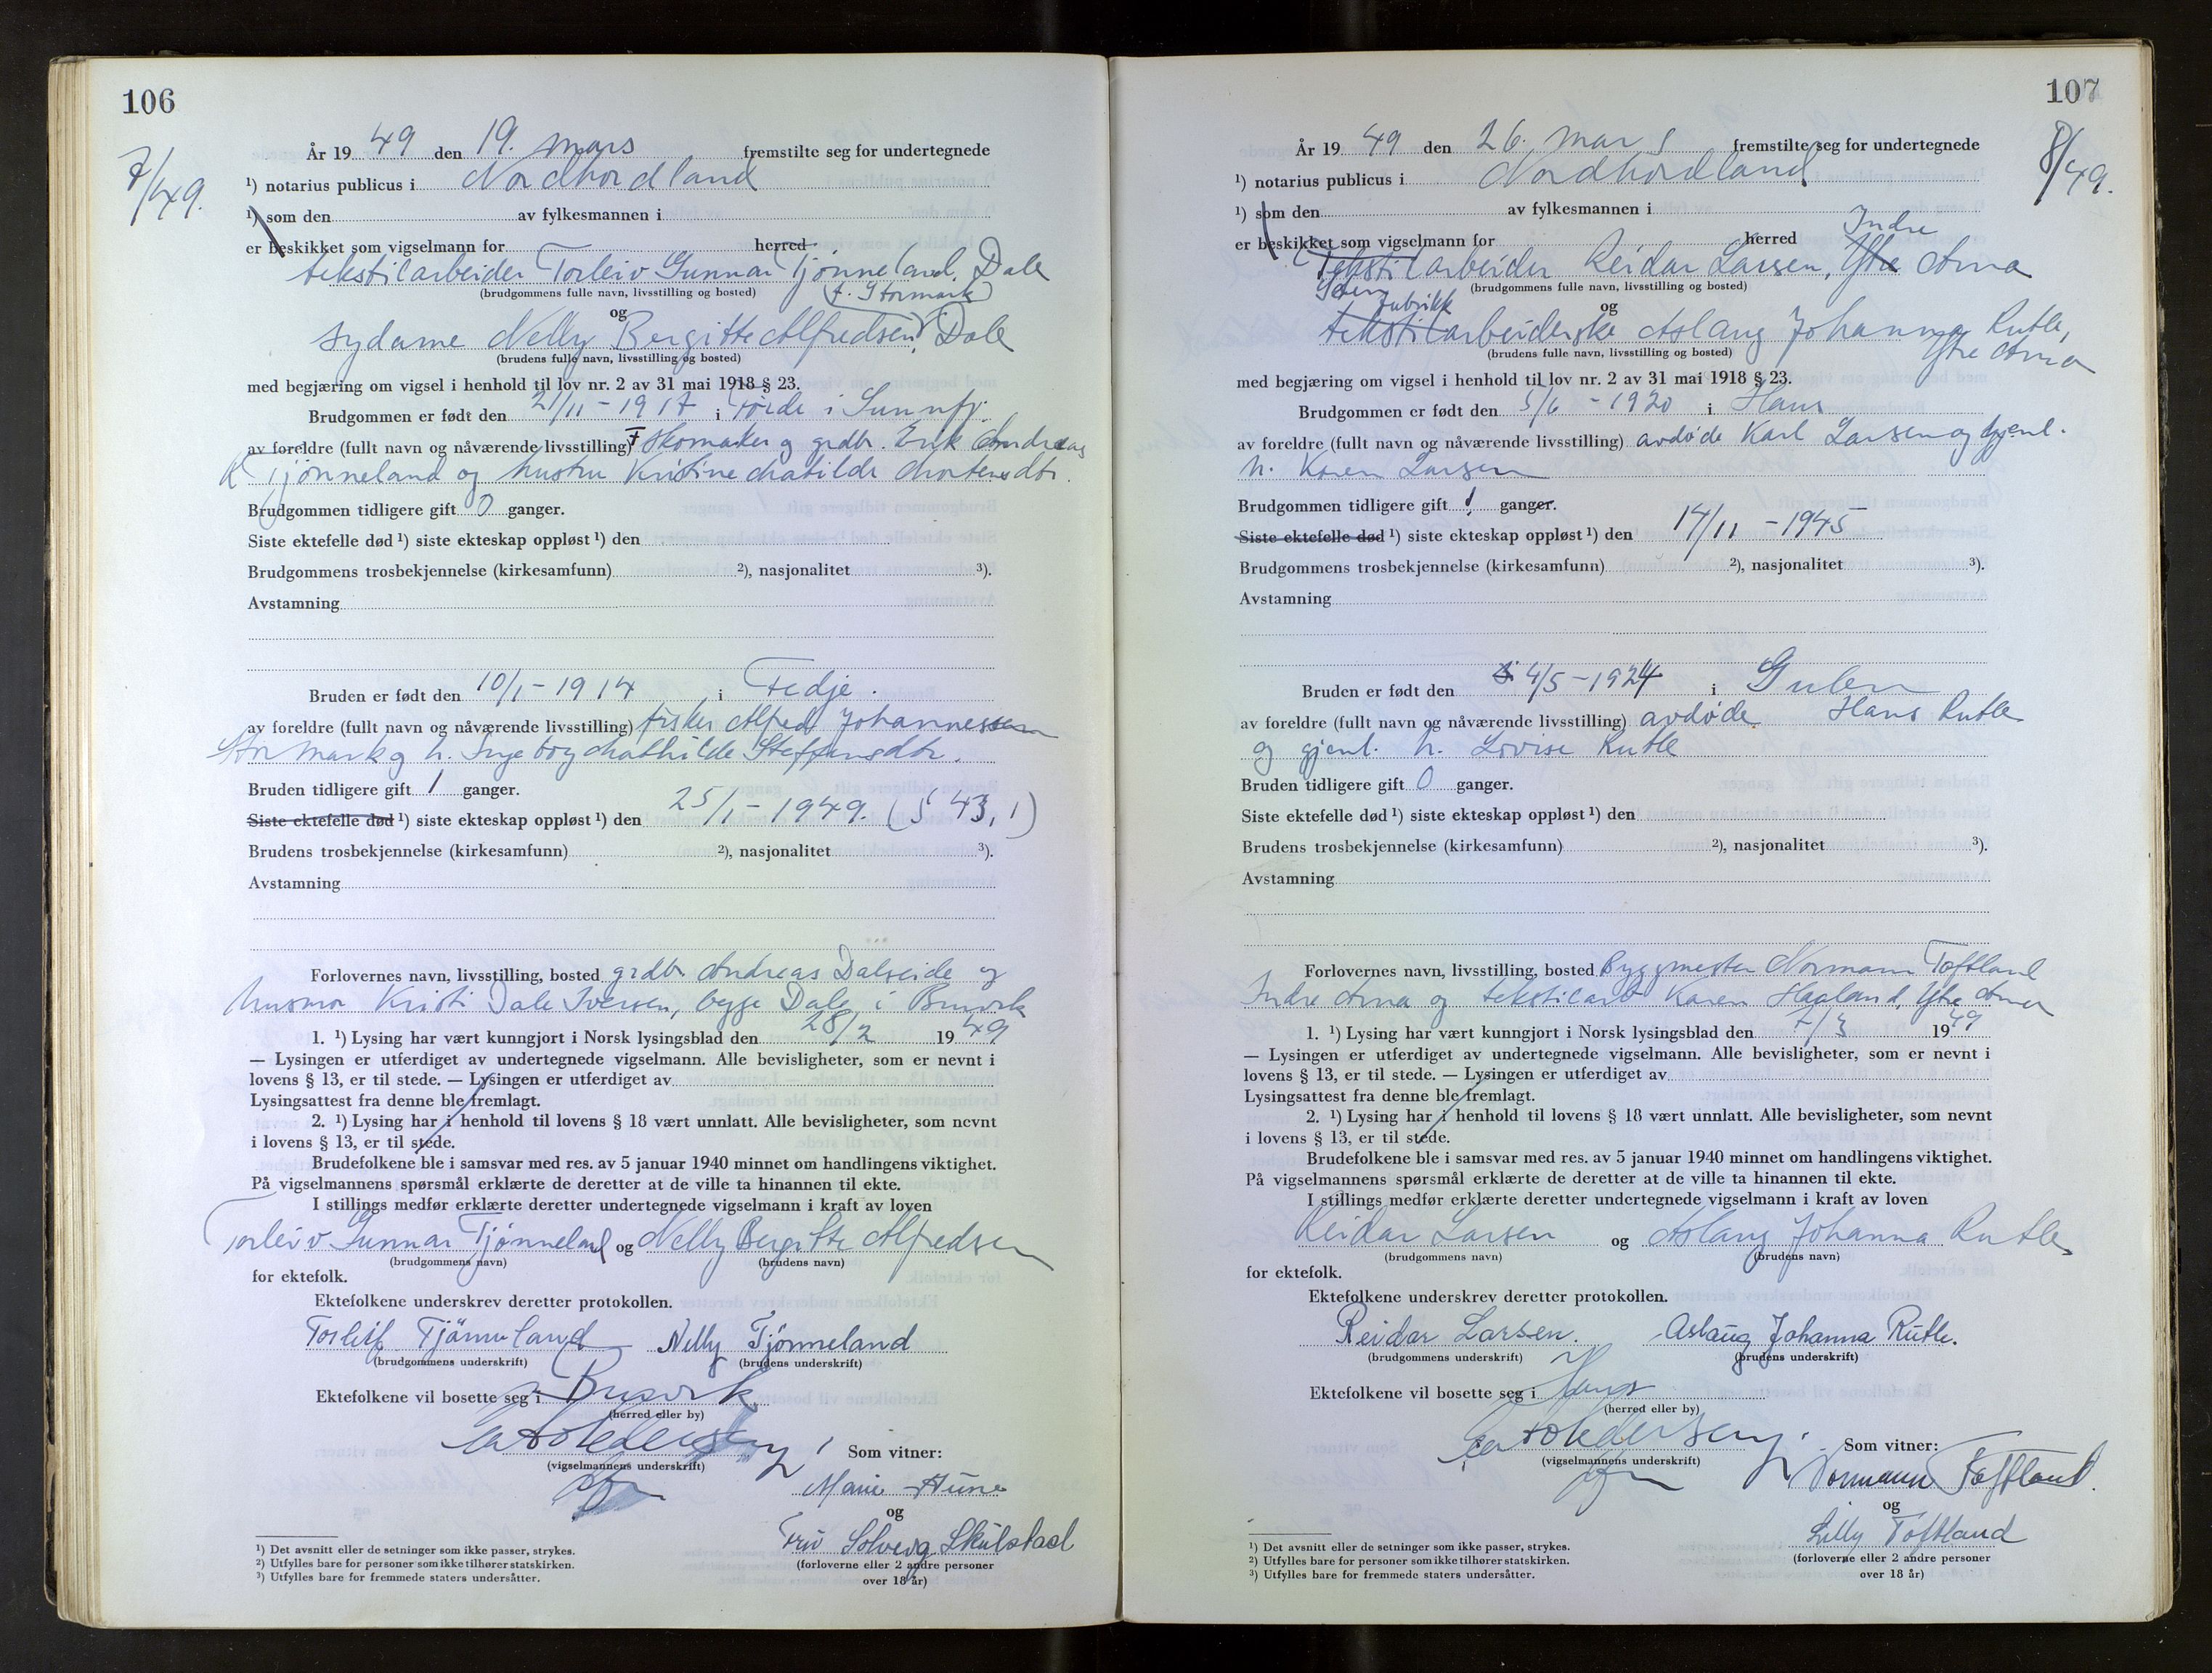 106
7/49.
År 19 49 den 19. mars fremstilte seg for undertegnede
¹) notarius publicus i Nordhordland
¹) som den av fylkesmannen i
er beskikket som vigselmann for herred
tekstilarbeider Torleiv Gunnar Tjønneland, Dale
(brudgommens fulle navn, livsstilling og bosted) (f. Stormark)
og
sydame Nelly Bergitte Alfredsen, Dale
(brudens fulle navn, livsstilling og bosted)
med begjæring om vigsel i henhold til lov nr. 2 av 31 mai 1918 § 23.
Brudgommen er født den 21/11 - 1917 i Førde i Sunnfj.
av foreldre (fullt navn og nåværende livsstilling) skomaker og grdbr. Erik Andreas
Tjønneland og hustru Kristine Matilde Mortensdtr.
Brudgommen tidligere gift 0 ganger.
Siste ektefelle død ¹) siste ekteskap oppløst ¹) den
Brudgommens trosbekjennelse (kirkesamfunn) ²), nasjonalitet ³).
Avstamning
Bruden er født den 10/1 - 1914 i Fedje.
av foreldre (fullt navn og nåværende livsstilling) fisker Alfred Johannessen
Stormark og h. Ingeborg Mathilde Steffensdtr.
Bruden tidligere gift 1 ganger.
Siste ektefelle død ¹) siste ekteskap oppløst ¹) den 25/1 - 1949. (§ 43, 1)
Brudens trosbekjennelse (kirkesamfunn) ²), nasjonalitet ³).
Avstamning
Forlovernes navn, livsstilling, bosted grdbr. Andreas Dalseide og
husmor Kristi Dale Iversen, begge Dale i Bruvik
1. ¹) Lysing har vært kunngjort i Norsk lysingsblad den 28/2 19 49
— Lysingen er utferdiget av undertegnede vigselmann. Alle bevisligheter, som er nevnt i
lovens § 13, er til stede. — Lysingen er utferdiget av
Lysingsattest fra denne ble fremlagt.
2. ¹) Lysing har i henhold til lovens § 18 vært unnlatt. Alle bevisligheter, som nevnt
i lovens § 13, er til stede.
Brudefolkene ble i samsvar med res. av 5 januar 1940 minnet om handlingens viktighet.
På vigselmannens spørsmål erklærte de deretter at de ville ta hinannen til ekte.
I stillings medfør erklærte deretter undertegnede vigselmann i kraft av loven
Torleiv Gunnar Tjønneland og Nelly Bergitte Alfredsen
(brudgommens navn) (brudens navn)
for ektefolk.
Ektefolkene underskrev deretter protokollen.
Torleif Tjønneland Nelly Tjønneland
(brudgommens underskrift) (brudens underskrift)
Ektefolkene vil bosette seg i Bruvik
(herred eller by)
(vigselmannens underskrift)
Som vitner:
Marie Hune
og
Fru Solveig Skulstad
(forloverne eller 2 andre personer
over 18 år)
¹) Det avsnitt eller de setninger som ikke passer, strykes.
²) Utfylles bare for personer som ikke tilhører statskirken.
³) Utfylles bare for fremmede staters undersåtter.
107
8/49.
År 19 49 den 26. mars fremstilte seg for undertegnede
¹) notarius publicus i Nordhordland
¹) som den av fylkesmannen i
er beskikket som vigselmann for herred Indre
Tekstilarbeider Reidar Larsen, Ytre Arna
(brudgommens fulle navn, livsstilling og bosted)
og
fabrikk
tekstilarbeiderske Aslaug Johanna Rutle,
Ytre Arna
(brudens fulle navn, livsstilling og bosted)
med begjæring om vigsel i henhold til lov nr. 2 av 31 mai 1918 § 23.
Brudgommen er født den 5/6 - 1920 i Haus
av foreldre (fullt navn og nåværende livsstilling) avdøde Karl Larsen og gjenl.
h. Karen Larsen
Brudgommen tidligere gift 1 ganger.
Siste ektefelle død ¹) siste ekteskap oppløst ¹) den 14/11 - 1945
Brudgommens trosbekjennelse (kirkesamfunn) ²), nasjonalitet ³).
Avstamning
Bruden er født den 4/5 - 1924 i Gulen
av foreldre (fullt navn og nåværende livsstilling) avdøde Hans Rutle
og gjenl. h. Lovise Rutle
Bruden tidligere gift 0 ganger.
Siste ektefelle død ¹) siste ekteskap oppløst ¹) den
Brudens trosbekjennelse (kirkesamfunn) ²), nasjonalitet ³).
Avstamning
Forlovernes navn, livsstilling, bosted Byggmester Normann Toftland
Indre Arna og tekstilarb Karen Haaland, Ytre Arna
1. ¹) Lysing har vært kunngjort i Norsk lysingsblad den 7/3 19 49
— Lysingen er utferdiget av undertegnede vigselmann. Alle bevisligheter, som er nevnt i
lovens § 13, er til stede. — Lysingen er utferdiget av
Lysingsattest fra denne ble fremlagt.
2. ¹) Lysing har i henhold til lovens § 18 vært unnlatt. Alle bevisligheter, som nevnt
i lovens § 13, er til stede.
Brudefolkene ble i samsvar med res. av 5 januar 1940 minnet om handlingens viktighet.
På vigselmannens spørsmål erklærte de deretter at de ville ta hinannen til ekte.
I stillings medfør erklærte deretter undertegnede vigselmann i kraft av loven
Reidar Larsen og Aslaug Johanna Rutle
(brudgommens navn) (brudens navn)
for ektefolk.
Ektefolkene underskrev deretter protokollen.
Reidar Larsen. Aslaug Johanna Rutle.
(brudgommens underskrift) (brudens underskrift)
Ektefolkene vil bosette seg i Haus
(herred eller by)
(vigselmannens underskrift)
Som vitner:
Normann Toftland.
og
Lilly Toftland
(forloverne eller 2 andre personer
over 18 år)
¹) Det avsnitt eller de setninger som ikke passer, strykes.
²) Utfylles bare for personer som ikke tilhører statskirken.
³) Utfylles bare for fremmede staters undersåtter.